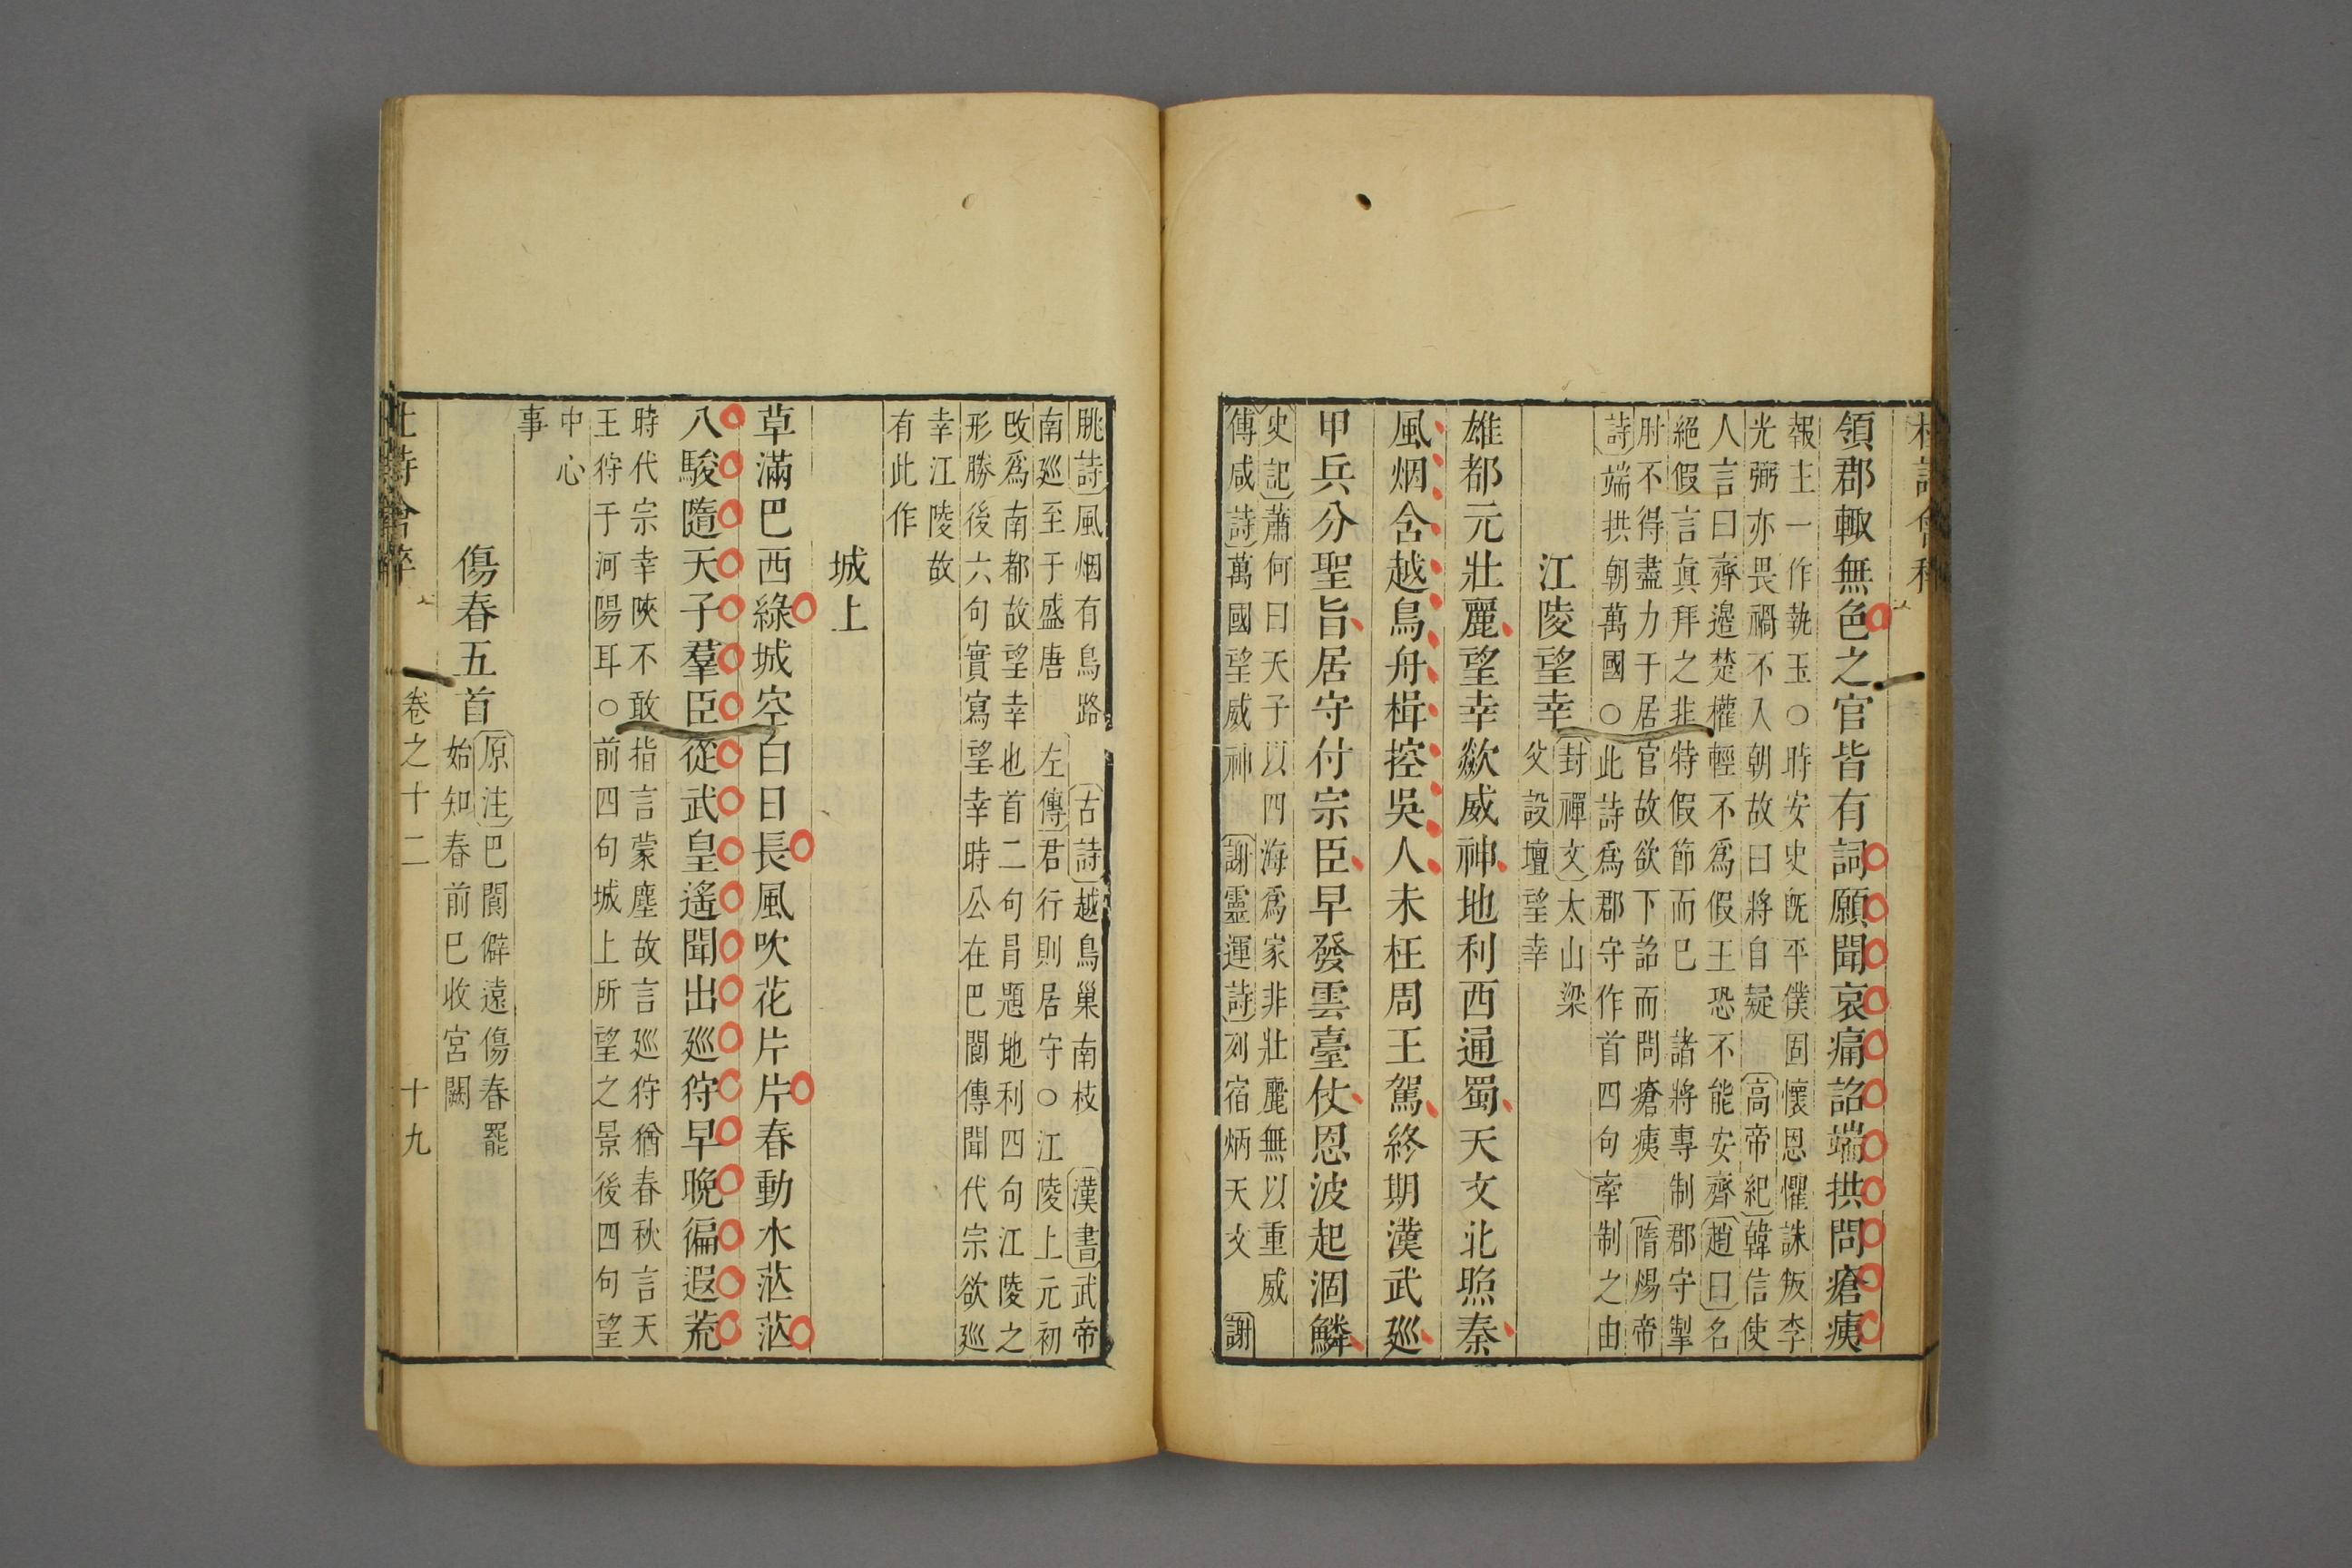 領郡輙無色之官皆有詞願聞哀痛詔端拱問瘡痍
報主一作執玉○時安史旣平僕固懷恩懼誅叛李
光弼亦畏禍不入朝故曰將自疑 高帝紀韓信使
人言曰齊邊楚權輕不爲假王恐不能安齊趙曰名
絕假言眞拜之非特假節而已 諸將專制郡守掣
肘不得盡力于居官故欲下詔而問瘡痍 隋煬帝
詩端拱朝萬國○此詩爲郡守作首四句牽制之由
江陵望幸
封禪文太山梁
父設壇望幸
雄都元壯麗望幸歘威神地利西通蜀天文北照秦
風烟含越鳥舟楫控吳人未枉周王駕終期漢武廵
甲兵分聖旨居守付宗臣早發雲臺仗恩波起涸鱗
史記蕭何曰天子以四海爲家非壯麗無以重威
傅咸詩萬國望威神 謝靈運詩列宿炳天文 謝
朓詩風烟有鳥路 古詩越鳥巢南枝 漢書武帝
南廵至于盛唐 左傳君行則居守○江陵上元初
改爲南都故望幸也首二句冐題地利四句江陵之
形勝後六句實寫望幸時公在巴閬傳聞代宗欲廵
幸江陵故
有此作
城上
草滿巴西綠城空白日長風吹花片片春動水茫茫
八駿隨天子羣臣從武皇遙聞出廵狩早晚徧遐荒
時代宗幸陝不敢指言蒙塵故言廵狩猶春秋言天
王狩于河陽耳○前四句城上所望之景後四句望
中心
事
傷春五首
原注巴閬僻遠傷春罷
始知春前已收宮闕
卷之十二 十九